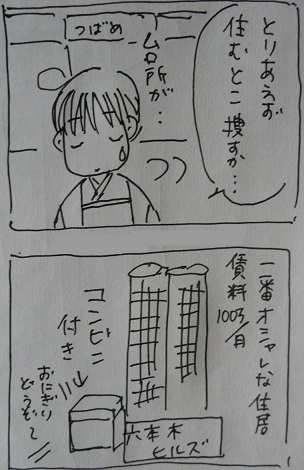 とりあえず
住むとこ
捜すか…
つばめ
台所が…
一番オシャレな住居
賃料100万/月
コンビニ
付き
おにぎり
どうぞ〜
六本木
ヒルズ